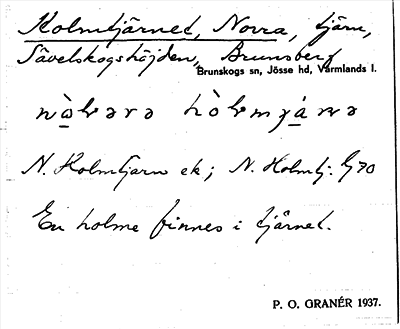 Holmtjärnet, Norra, tjärn,
Sävelskogshöjden, Brunsberg
Brunskogs sn, Jösse hd, Värmlands l.
N. Holmtjarn ek; N. Holmtj. 70
En holme finnes i tjärnet.
P. O. GRANÉR 1937.